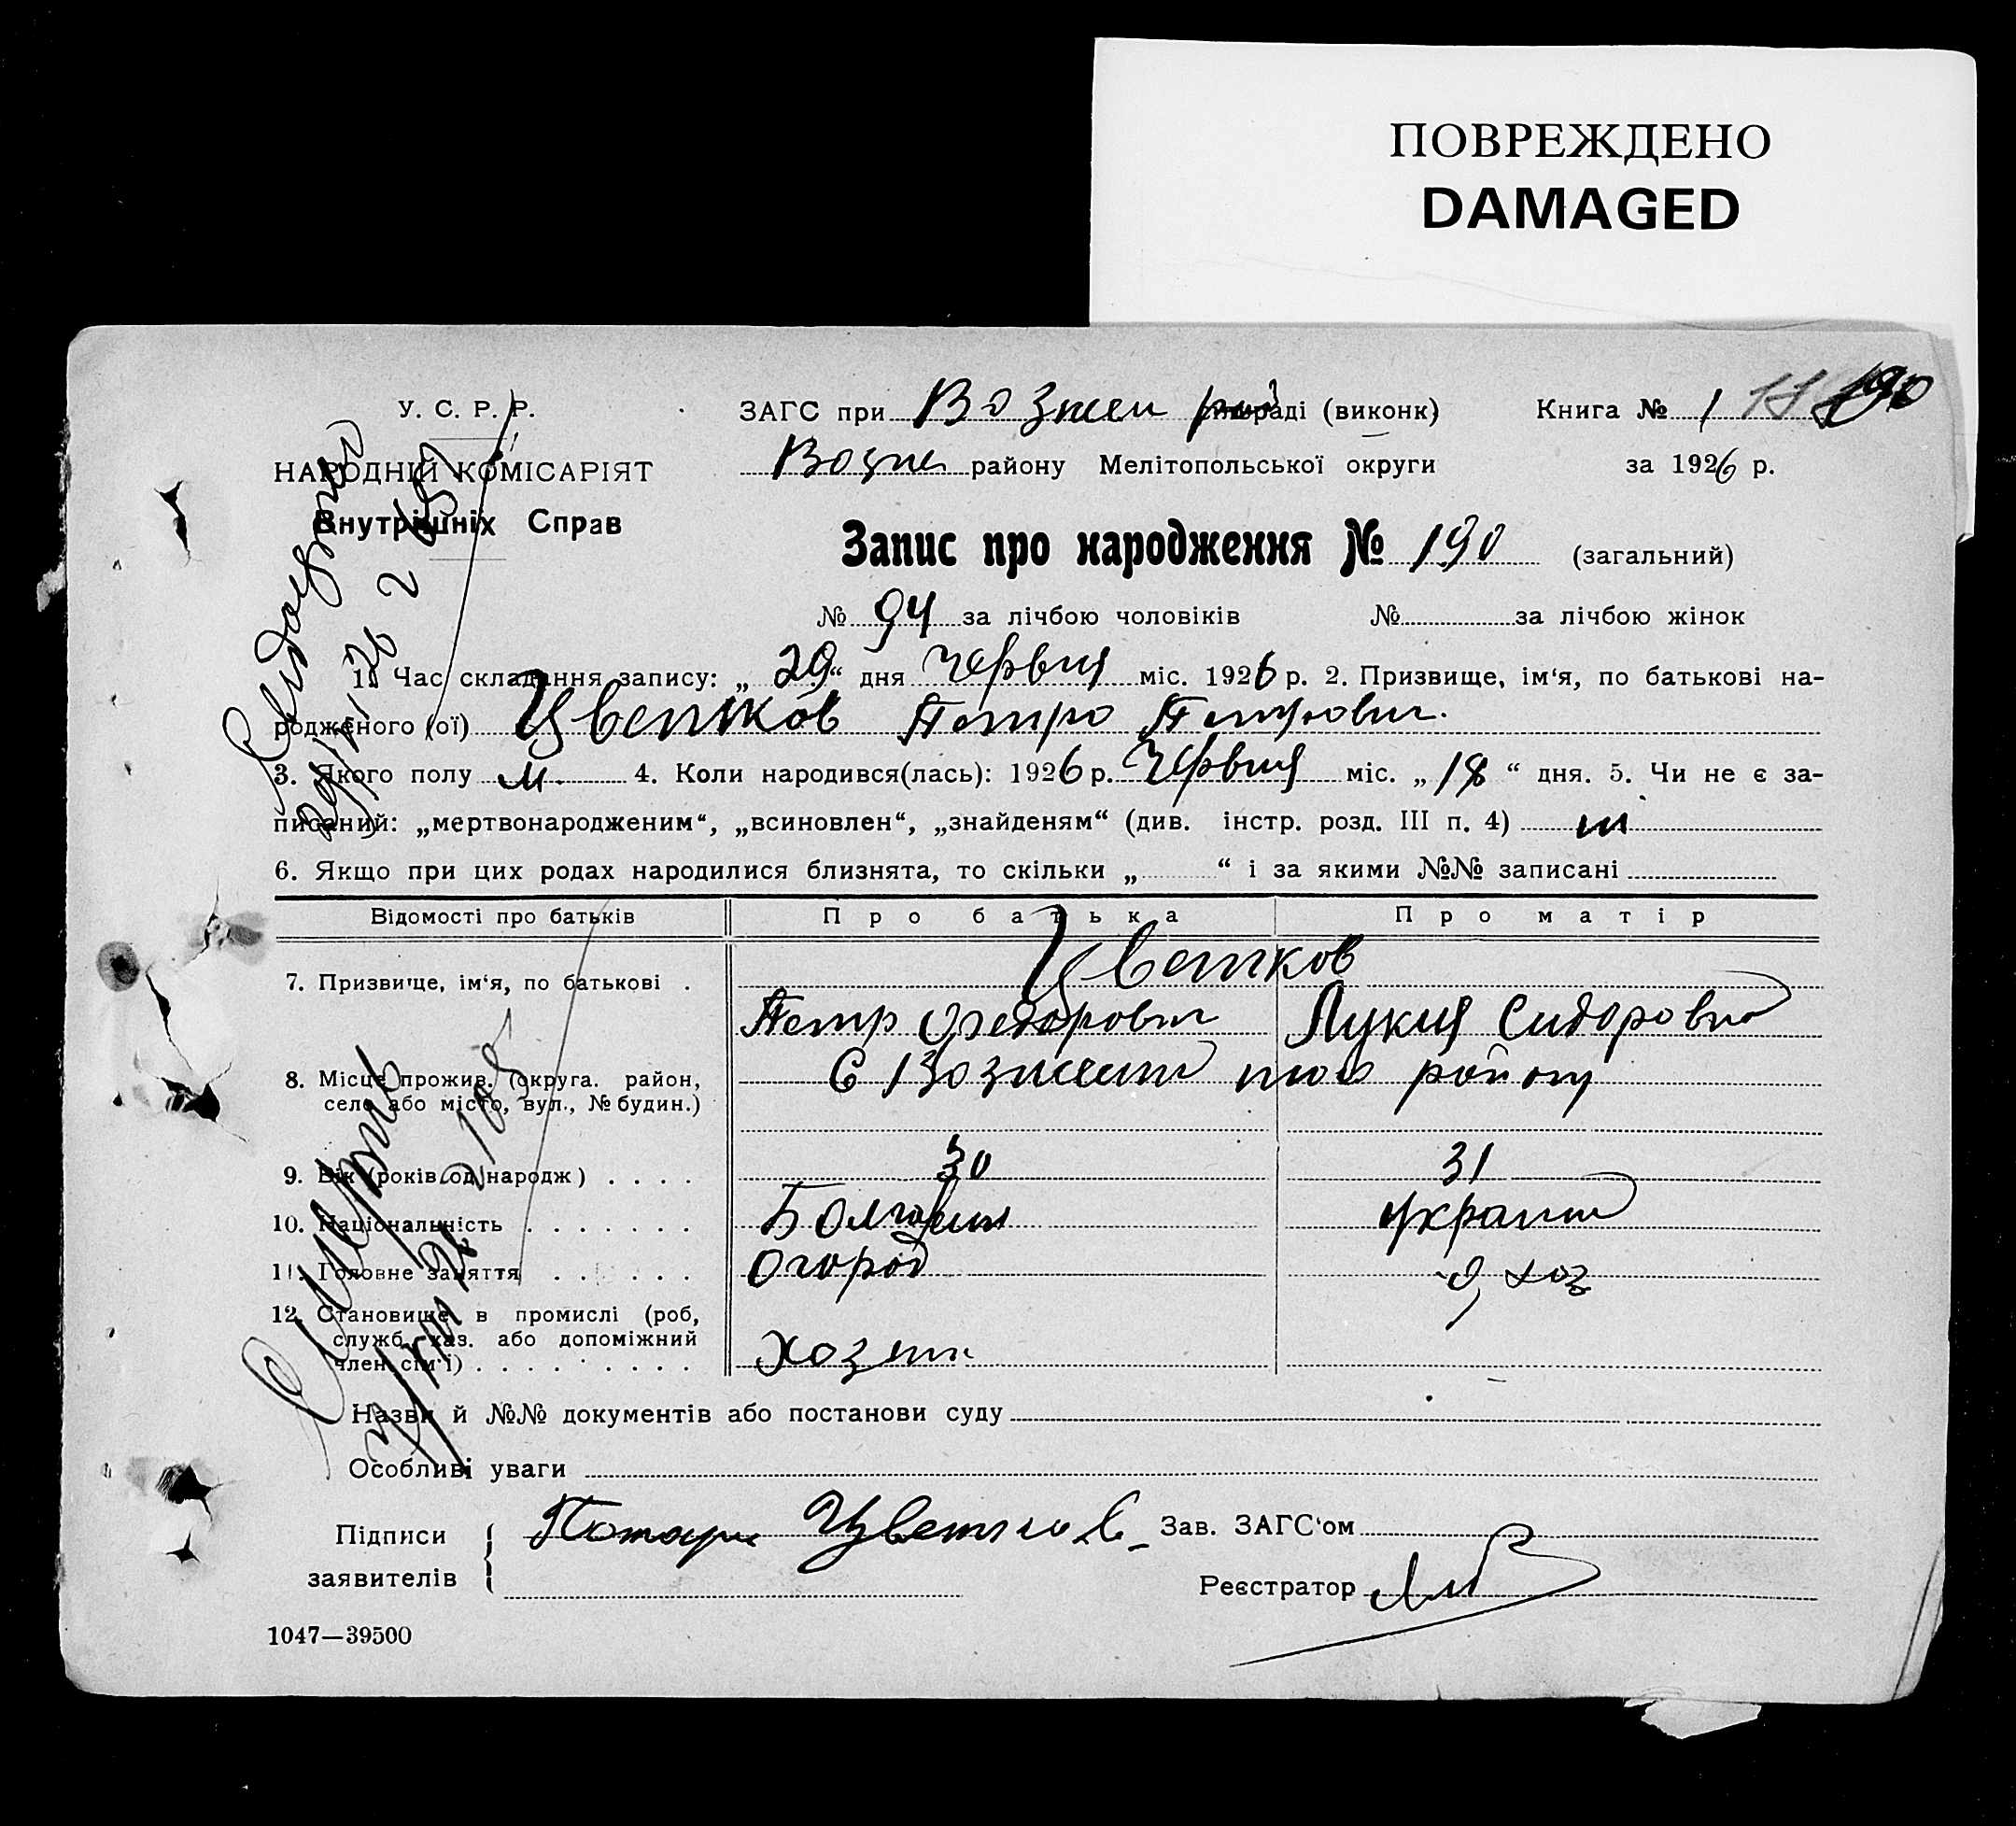 ПОВРЕЖДЕНО
DAMAGED
У. С. Р. Р.
НАРОДНІЙ КОМІСАРІЯТ
Внутрішніх Справ
ЗАГС при Вознен рай раді (виконк)
Книга № 1 11 190
Возне району Мелітопольської округи
за 1926 р.
Запис про народження № 190 (загальний)
№ 94 за лічбою чоловіків № за лічбою жінок
1. Час складання запису: „29“ дня Червня міс. 1926 р. 2. Призвище, ім‘я, по батькові на-
родженого (ої) Цветков Петро Петрович.
3. Якого полу м. 4. Коли народився(лась): 1926 р. Червня міс. „18“ дня. 5. Чи не є за-
писаний: „мертвонародженим“, „всиновлен“, „знайденям“ (див. інстр. розд. III п. 4) ні
6. Якщо при цих родах народилися близнята, то скільки „ “ і за якими №№ записані
Відомості про батьків
Про батька
Про матір
7. Призвище, ім‘я, по батькові .
Цветков
Петр Федорович
Лукия Сидоровна
8. Місце прожив. (округа. район,
село або місто, вул., № будин.)
С Вознесен того району
9. Вік (років од народж) . . . .
30
31
10. Національність . . . . . . .
Болгарин
украин
11. Головне заняття . . . . . .
Огород
д хоз
12. Становище в промислі (роб,
служб, хаз. або допоміжний
член сім‘ї) . . . . . . . . .
Хозяин
Назви й №№ документів або постанови суду
Особливі уваги
Підписи
заявителів
Цветков
Зав. ЗАГС‘ом
Реєстратор
1047—39500